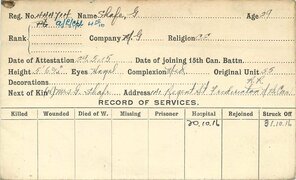 Reg. No. 444704 Name Shafe, G. Age 29
Rank Company M.G Religion
Date of Attestation 29.5.15 Date of joining 15th Can. Battn.
Height 5' 6½" Eyes Hazel Complexion Med Original Unit 55
Decorations
Next of Kin Mrs G. Shafe Address Regent St Fredericton N.B. Can
RECORD OF SERVICES.
Killed Wounded Died of W. Missing Prisoner Hospital Rejoined Struck Off
20.10.16 31.10.16